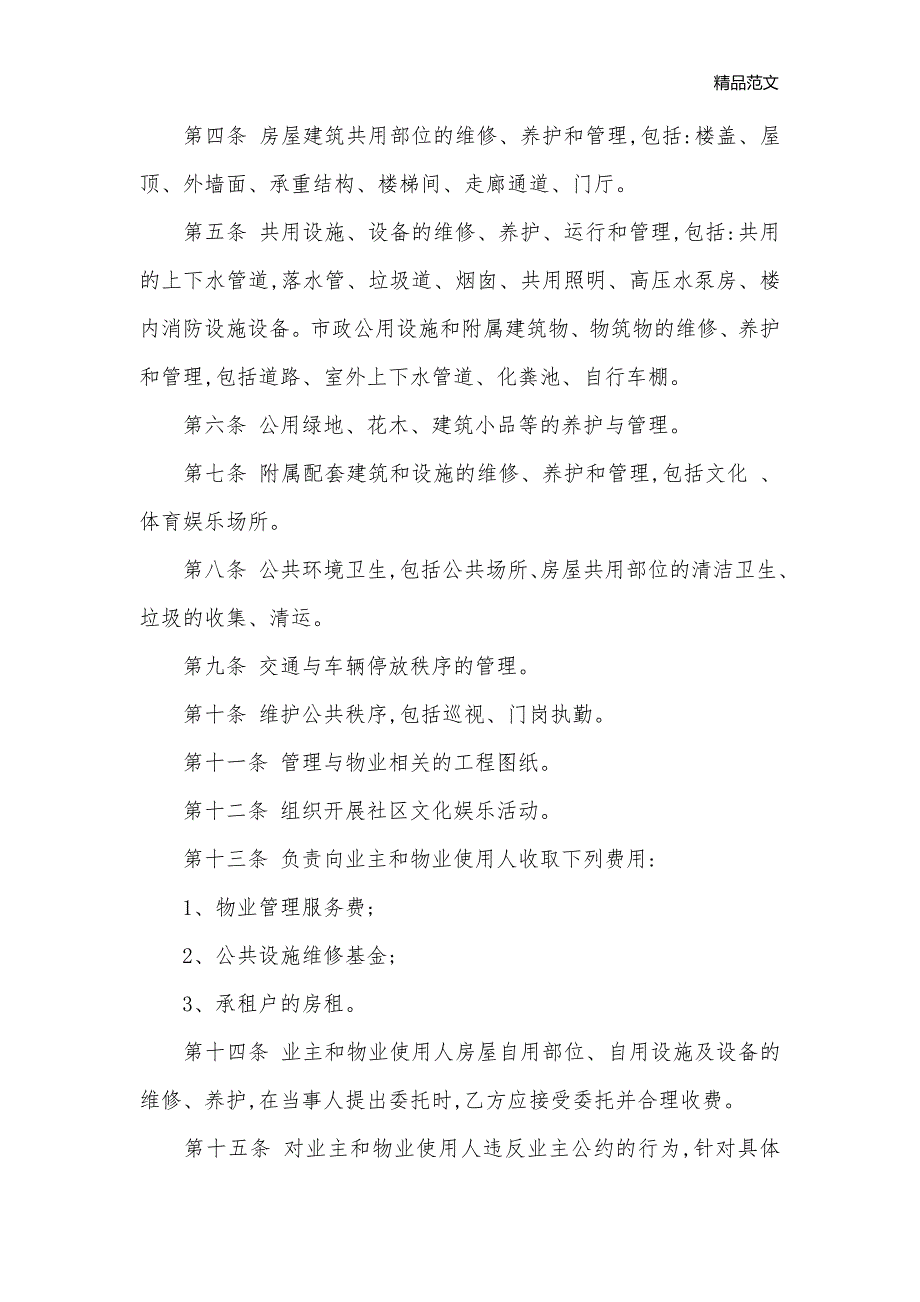 精品范文
第四条 房屋建筑共用部位的维修、养护和管理,包括:楼盖、屋
顶、外墙面、承重结构、楼梯间、走廊通道、门厅。
第五条 共用设施、设备的维修、养护、运行和管理,包括:共用
的上下水管道,落水管、垃圾道、烟囱、共用照明、高压水泵房、楼
内消防设施设备。市政公用设施和附属建筑物、物筑物的维修、养护
和管理,包括道路、室外上下水管道、化粪池、自行车棚。
第六条 公用绿地、花木、建筑小品等的养护与管理。
第七条 附属配套建筑和设施的维修、养护和管理,包括文化 、
体育娱乐场所。
第八条 公共环境卫生,包括公共场所、房屋共用部位的清洁卫生、
垃圾的收集、清运。
第九条 交通与车辆停放秩序的管理。
第十条 维护公共秩序,包括巡视、门岗执勤。
第十一条 管理与物业相关的工程图纸。
第十二条 组织开展社区文化娱乐活动。
第十三条 负责向业主和物业使用人收取下列费用:
1、物业管理服务费;
2、公共设施维修基金;
3、承租户的房租。
第十四条 业主和物业使用人房屋自用部位、自用设施及设备的
维修、养护,在当事人提出委托时,乙方应接受委托并合理收费。
第十五条 对业主和物业使用人违反业主公约的行为,针对具体